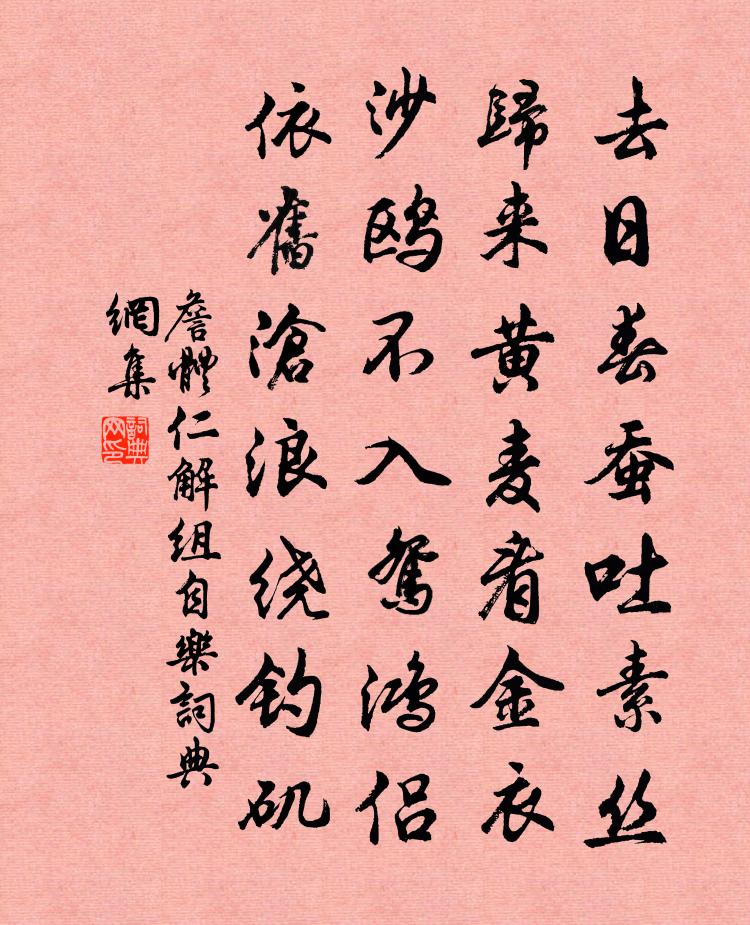 去日春蚕吐素丝
歸来黄麦看金衣
沙鸥不入鸳鸿侣
依舊滄浪绕钓矶
詹體仁解组自樂詞典
網集
詞典
网印